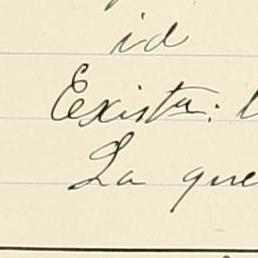 id
Exista: l
La que